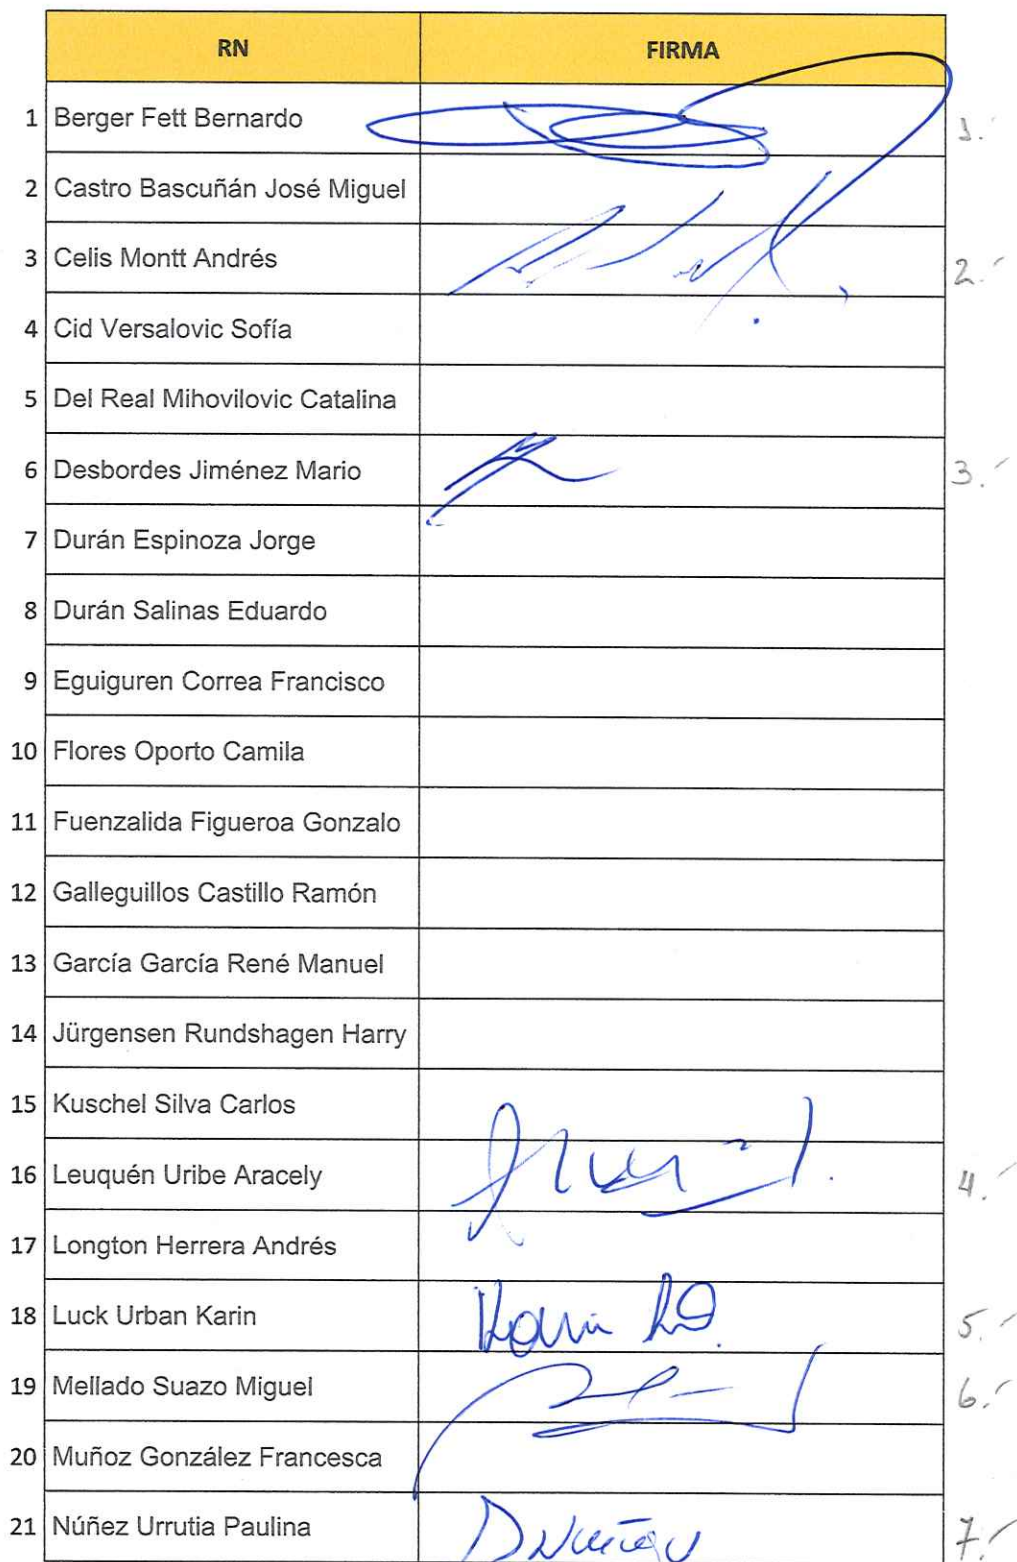 RN FIRMA
1 Berger Fett Bernardo 1.-
2 Castro Bascuñán José Miguel
3 Celis Montt Andrés 2.-
4 Cid Versalovic Sofía
5 Del Real Mihovilovic Catalina
6 Desbordes Jiménez Mario 3.-
7 Durán Espinoza Jorge
8 Durán Salinas Eduardo
9 Eguiguren Correa Francisco
10 Flores Oporto Camila
11 Fuenzalida Figueroa Gonzalo
12 Galleguillos Castillo Ramón
13 García García René Manuel
14 Jürgensen Rundshagen Harry
15 Kuschel Silva Carlos
16 Leuquén Uribe Aracely 4.-
17 Longton Herrera Andrés
18 Luck Urban Karin Karin 5.-
19 Mellado Suazo Miguel 6.-
20 Muñoz González Francesca
21 Núñez Urrutia Paulina 7.-